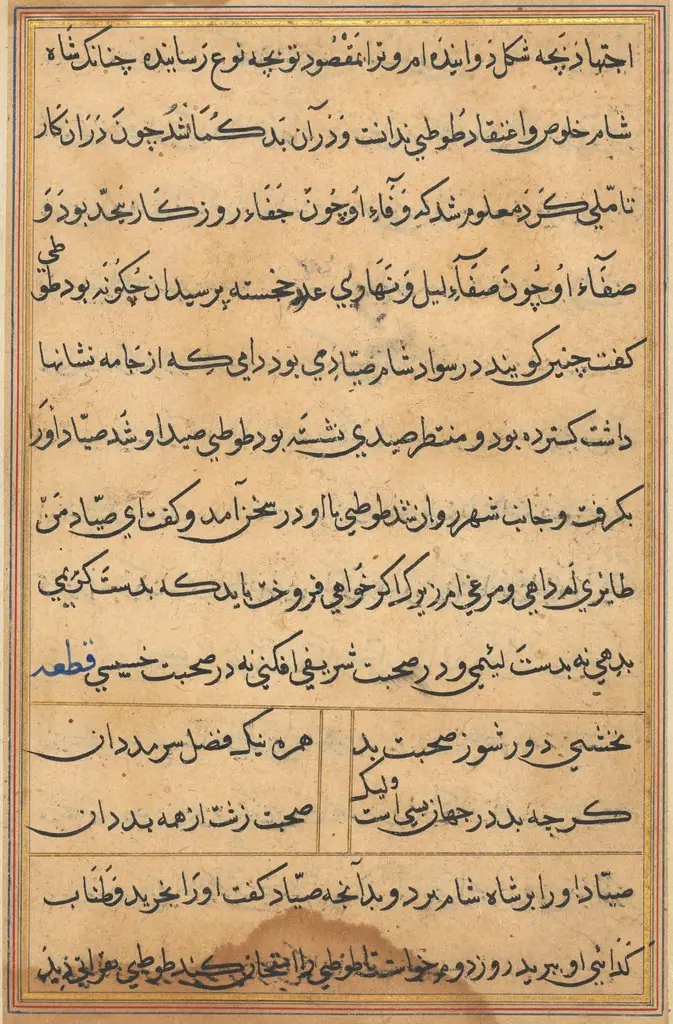 اجتهاد بچه شکل دوانیده ام و ترا بمقصود تو بچه نوع رسانیده چنانک شاه
شام خلوص و اعتقاد طوطی ندانست و در آن بد کمان شد چون در ان کار
تاملی کرد معلوم شد که وفاء او چون جفاء روزکار بیحد بود و
صفاء او چون صفاء لیل و نهار بی عدد خجسته پرسید ان چکونه بود طوطی
کفت چنین کویند در سواد شام صیادی بود دامی که از جامه نشانها
داشت کسترده بود و منتظر صیدی نشسته بود طوطی صید او شد صیاد اورا
بکرفت و جانب شهر روان شد طوطی با او در سخن آمد و کفت ای صیاد من
طایری ام داهی و مرغی ام زیرک اکر خواهی فروخت باید که بدست کریمی
بدهی نه بدست لئیمی و در صحبت شریفی افکنی نه در صحبت خسیسی قطعه
نخشبی دور شو ز صحبت بد همره نیک فضل سرمد دان
کرچه بد در جهان بسی است ولیک صحبت زشت از همه بد دان
صیاد اورا بر شاه شام برد و بدآنچه صیاد کفت اورا بخرید و طناب
کدائی او ببرید روز دوم خواست تا طوطی را امتحان کند طوطی